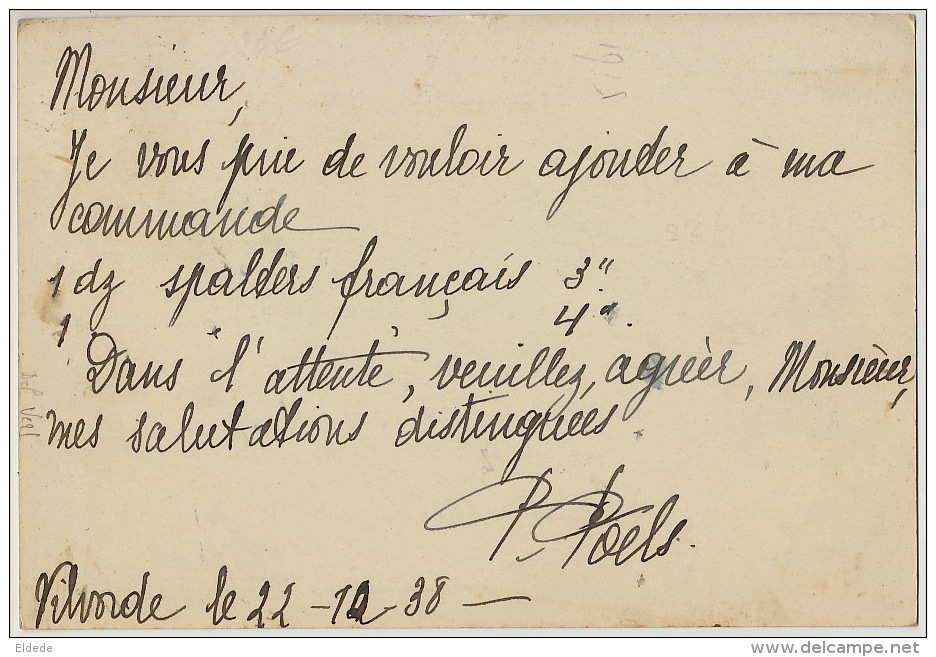 Monsieur,
Je vous prie de vouloir ajouter à ma
commande
1 dz spalters français 3".
1 " " " 4".
Dans l'attente, veuillez, agréer, Monsieur,
mes salutations distinguées
P. Poels.
Vilvorde le 22 - 12 - 38 —
Eldede
www.delcampe.net